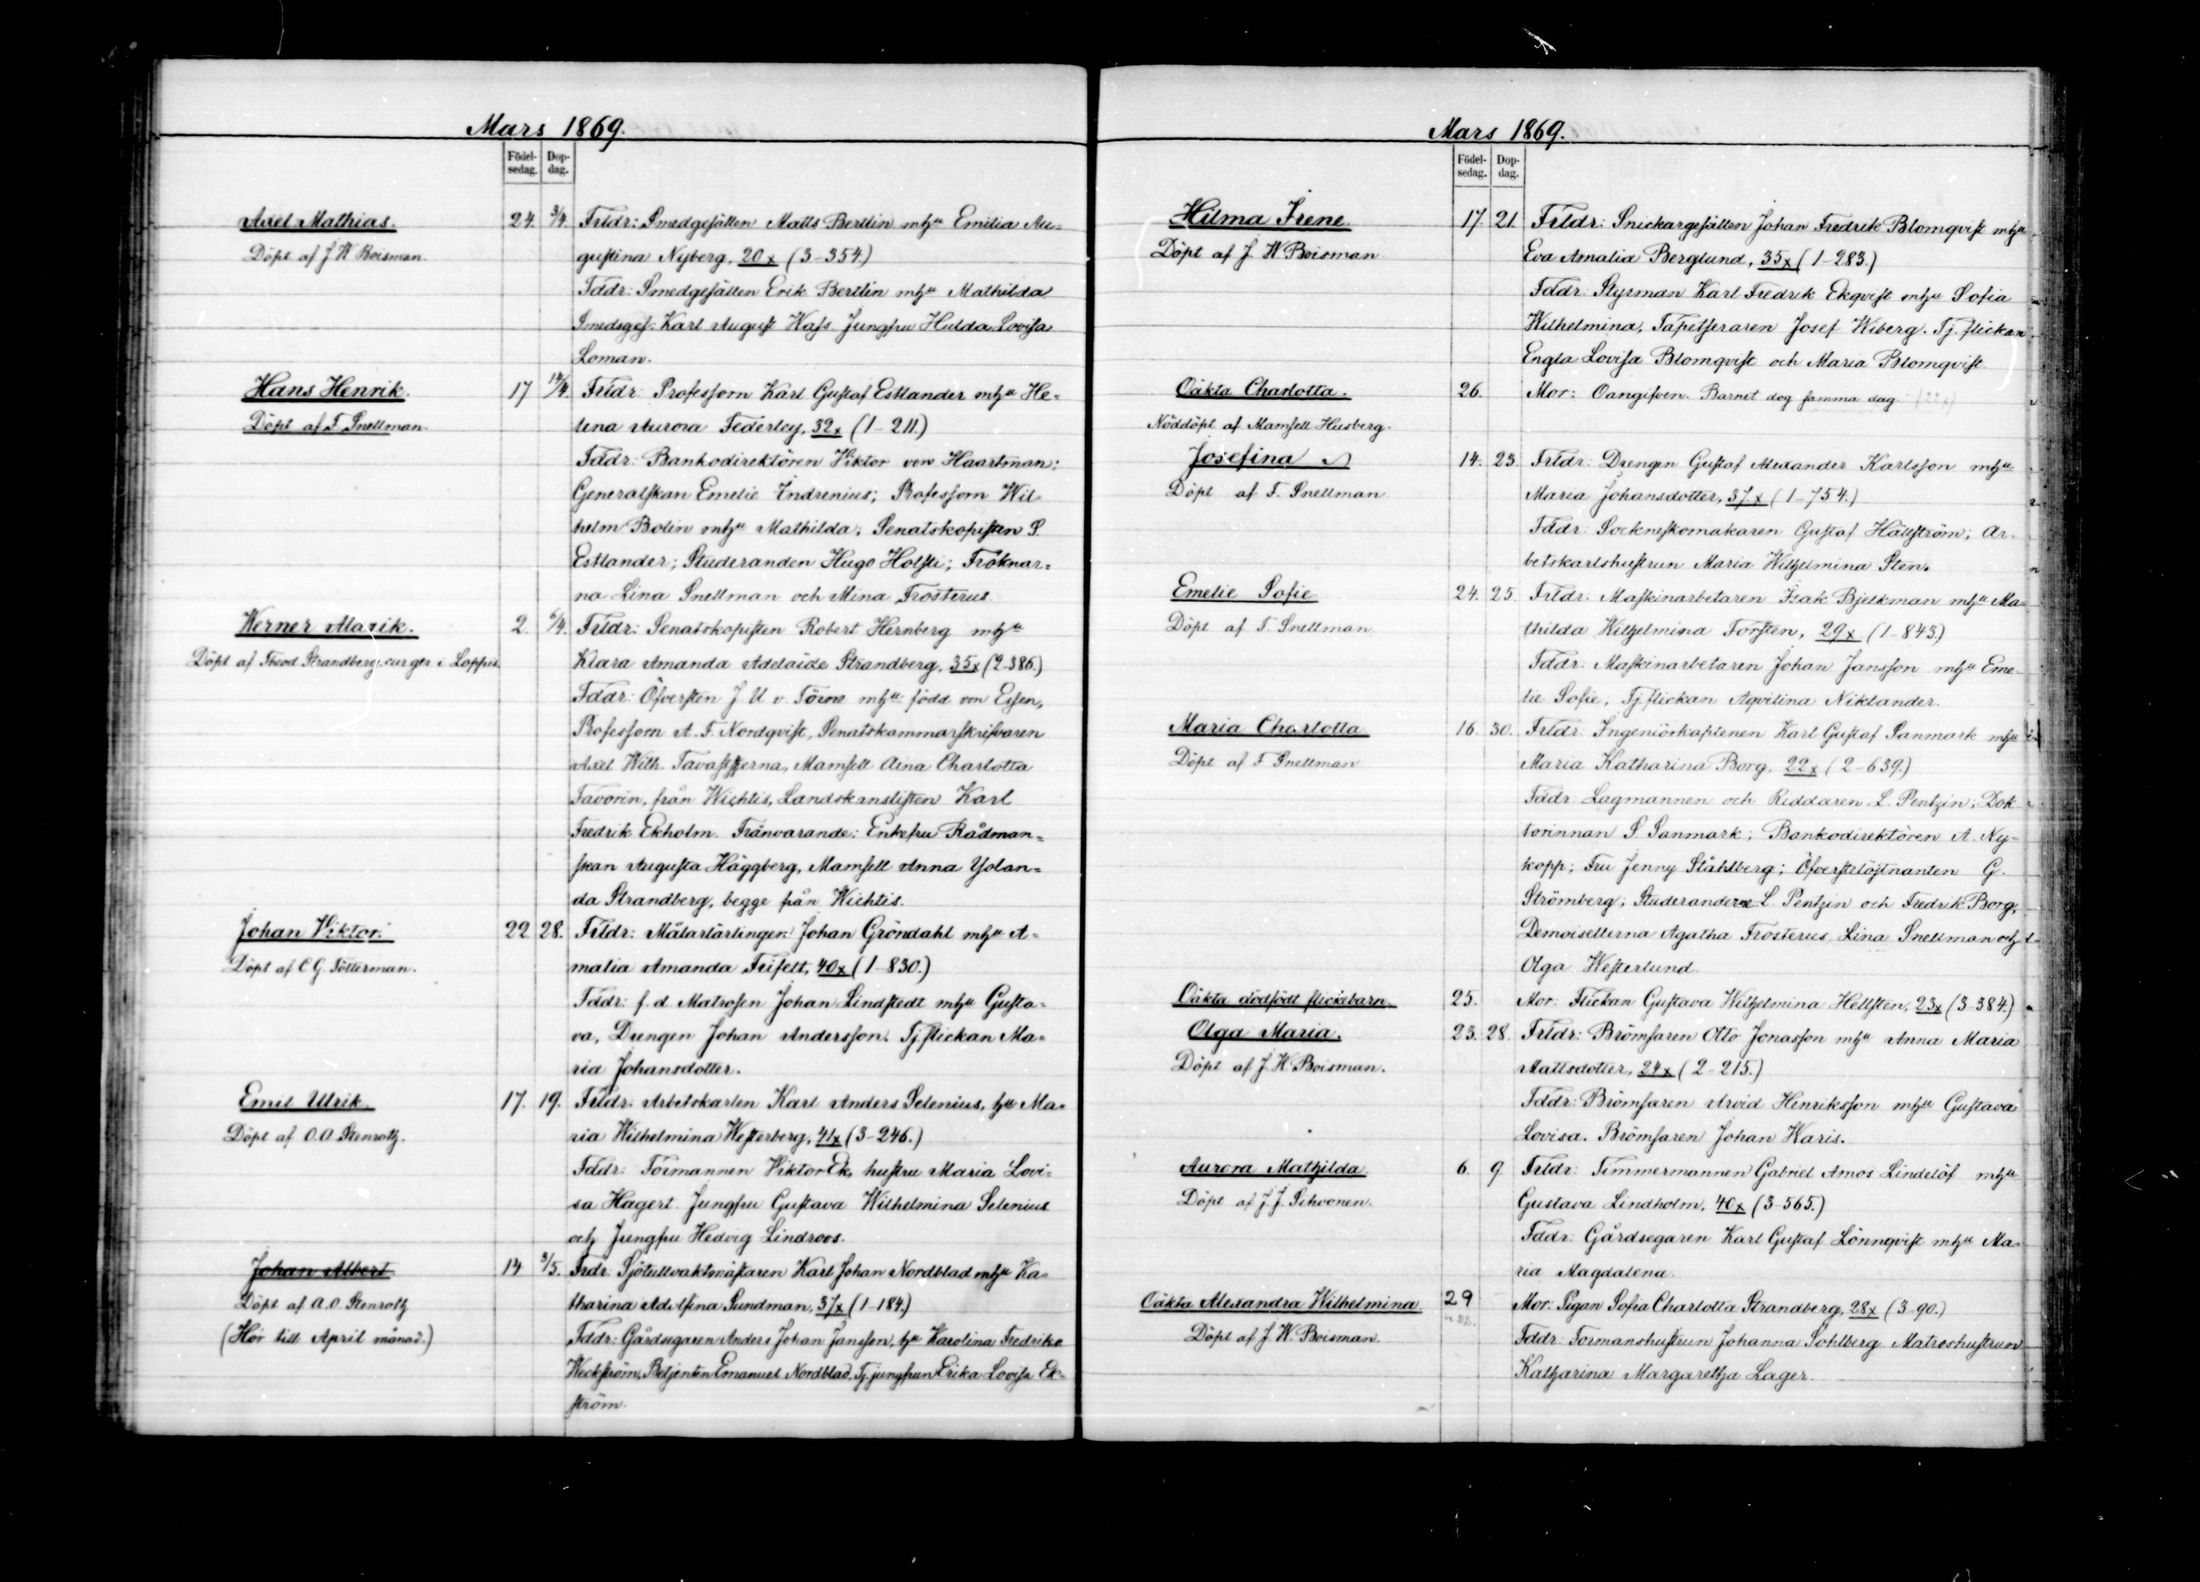 Mars 1869.
Födel-sedag. Dop-dag.
Axel Mathias. 24. 3/4. Frldr: Smedgesällen Matts Bertlin mhu Emilia Au-
Döpt af J. W Boisman. gustina Nyberg, 20x (3-354.)
Fddr: Smedgesällen Erik Bertlin mhu Mathilda
Smedsges. Karl August Wass Jungfru Hulda Lovisa
Loman.
Hans Henrik. 17 12/4. Frldr: Professorn Karl Gustaf Estlander mhu He-
Döpt af F. Snellman. lena Aurora Federley, 32x (1-211.)
Fddr: Bankodirektören Viktor von Haartman;
Generalskan Emelie Indrenius; Professorn Wil-
helm Bolin mhu Mathilda; Senatskopisten S.
Estlander; Studeranden Hugo Holsti; Fröknar-
na Lina Snellman och Mina Frosterus.
Werner Alarik. 2. 6/4. Frldr: Senatskopisten Robert Hernberg mhu
Döpt af Theod. Strandberg, cur ger i Loppis. Klara Amanda Adelaide Strandberg, 35x (2-386.)
Fddr: Öfversten J. U v. Törne mhu född von Essen,
Professorn A. F. Nordqvist, Senatskammarskrifvaren
Axel Wilh. Tavaststjerna, Mamsell Aina Charlotta
Favorin, från Wichtis, Landskanslisten Karl
Fredrik Ekholm. Frånvarande: Enkefru Rådman-
skan Augusta Häggberg, Mamsell Anna Yolan-
da Strandberg, begge från Wichtis.
Johan Viktor. 22 28. Frldr: Målarlärlingen Johan Gröndahl mhu A-
Döpt af C G. Tötterman. malia Amanda Friselt, 40x (1-830.)
Fddr: f. d. Matrosen Johan Lindstedt mhu Gusta-
va, Drengen Johan Andersson. Tj.flickan Ma-
ria Johansdotter.
Emil Ulrik. 17. 19. Frldr: Arbetskarlen Karl Anders Selenius, hu Ma-
Döpt af O. A. Stenroth. ria Wilhelmina Westerberg, 41x (3-246.)
Fddr: Formannen Viktor Ek, hustru Maria Lovi-
sa Hagert. Jungfru Gustava Wilhelmina Selenius
och Jungfru Hedvig Lindroos.
Johan Albert. 14 3/5. Frdr. Sjötullvaktmästaren Karl Johan Nordblad mhu Ka-
Döpt af A. O. Stenroth tharina Adolfina Sundman, 37x (1-184.)
(Hör till April månad.) Fddr: Gårdsegaren Anders Johan Jansson, hu Karolina Fredrika
Weckström, Betjenten Emanuel Nordblad. Tj.jungfrun Erika Lovisa Ek-
ström.
Mars 1869.
Födel-sedag. Dop-dag.
Hilma Irene. 17. 21. Frldr: Snickargesällen Johan Fredrik Blomqvist mhu
Döpt af J. W Boisman Eva Amalia Berglund, 35x (1-283.)
Fddr: Styrman Karl Fredrik Ekqvist mhu Sofia
Wilhelmina, Tapetseraren Josef Wiberg. Tj. flickan
Engla Lovisa Blomqvist och Maria Blomqvist.
Oäkta Charlotta. 26. Mor: Oangifven. Barnet dog samma dag.
Nöddöpt af Mamsell Husberg.
Josefina 14. 23. Frldr: Drengen Gustaf Alexander Karlsson mhu
Döpt af F. Snellman. Maria Johansdotter, 37x (1-754.)
Fddr: Sockneskomakaren Gustaf Hällström; Ar-
betskarlshustrun Maria Wilhelmina Sten.
Emelie Sofie 24. 25. Frldr: Maskinarbetaren Isak Bjelkman mhu Ma-
Döpt af F. Snellman. thilda Wilhelmina Forsten, 29x (1-843.)
Fddr: Maskinarbetaren Johan Jansson mhu Eme-
lie Sofie, Tj.flickan Aqvilina Niklander.
Maria Charlotta 16. 30. Frldr: Ingeniörkaptenen Karl Gustaf Sanmark mhu
Döpt af F Snellman Maria Katharina Borg, 22x (2-639.)
Fddr: Lagmannen och Riddaren L. Pentzin; Dok-
torinnan S Sanmark; Bankodirektören A. Ny-
kopp; Fru Jenny Ståhlberg; Öfverstelöjtnanten G.
Strömberg; Studerandene L. Pentzin och Fredrik Borg,
Demoisellerna Agatha Frosterus, Lina Snellman och
Olga Westerlund.
Oäkta dödfödt flickebarn. 25. Mor: Flickan Gustava Wilhelmina Hellsten, 23x (3-384.)
Olga Maria. 23. 28. Frldr: Brömsaren Otto Jonasson mhu Anna Maria
Döpt af J. W. Boisman. Mattsdotter, 24x (2-215.)
Fddr: Brömsaren Arvid Henriksson mhu Gustava
Lovisa. Brömsaren Johan Haris.
Aurora Mathilda 6. 9. Frldr: Timmermannen Gabriel Amos Lindelöf mhu
Döpt af J. J. Sihvonen. Gustava Lindholm, 40x (3-565.)
Fddr: Gårdsegaren Karl Gustaf Lönnqvist mhu Ma-
ria Magdalena.
Oäkta Alexandra Wilhelmina 29 Mor: Pigan Sofia Charlotta Strandberg, 28x (3-90.)
Döpt af J. W. Boisman. Fddr: Formanshustrun Johanna Sohlberg Matroshustrun
Katharina Margaretha Lager.